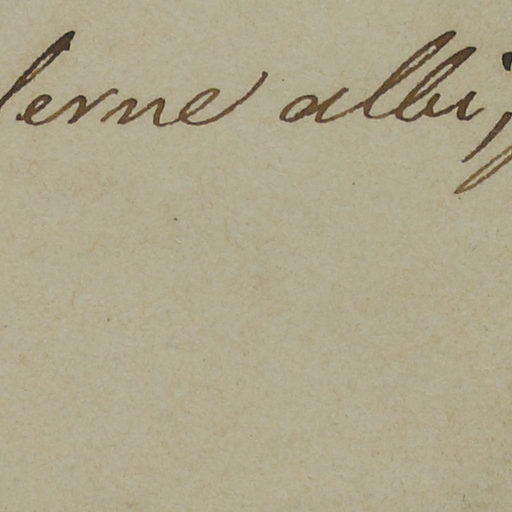 lerne albi